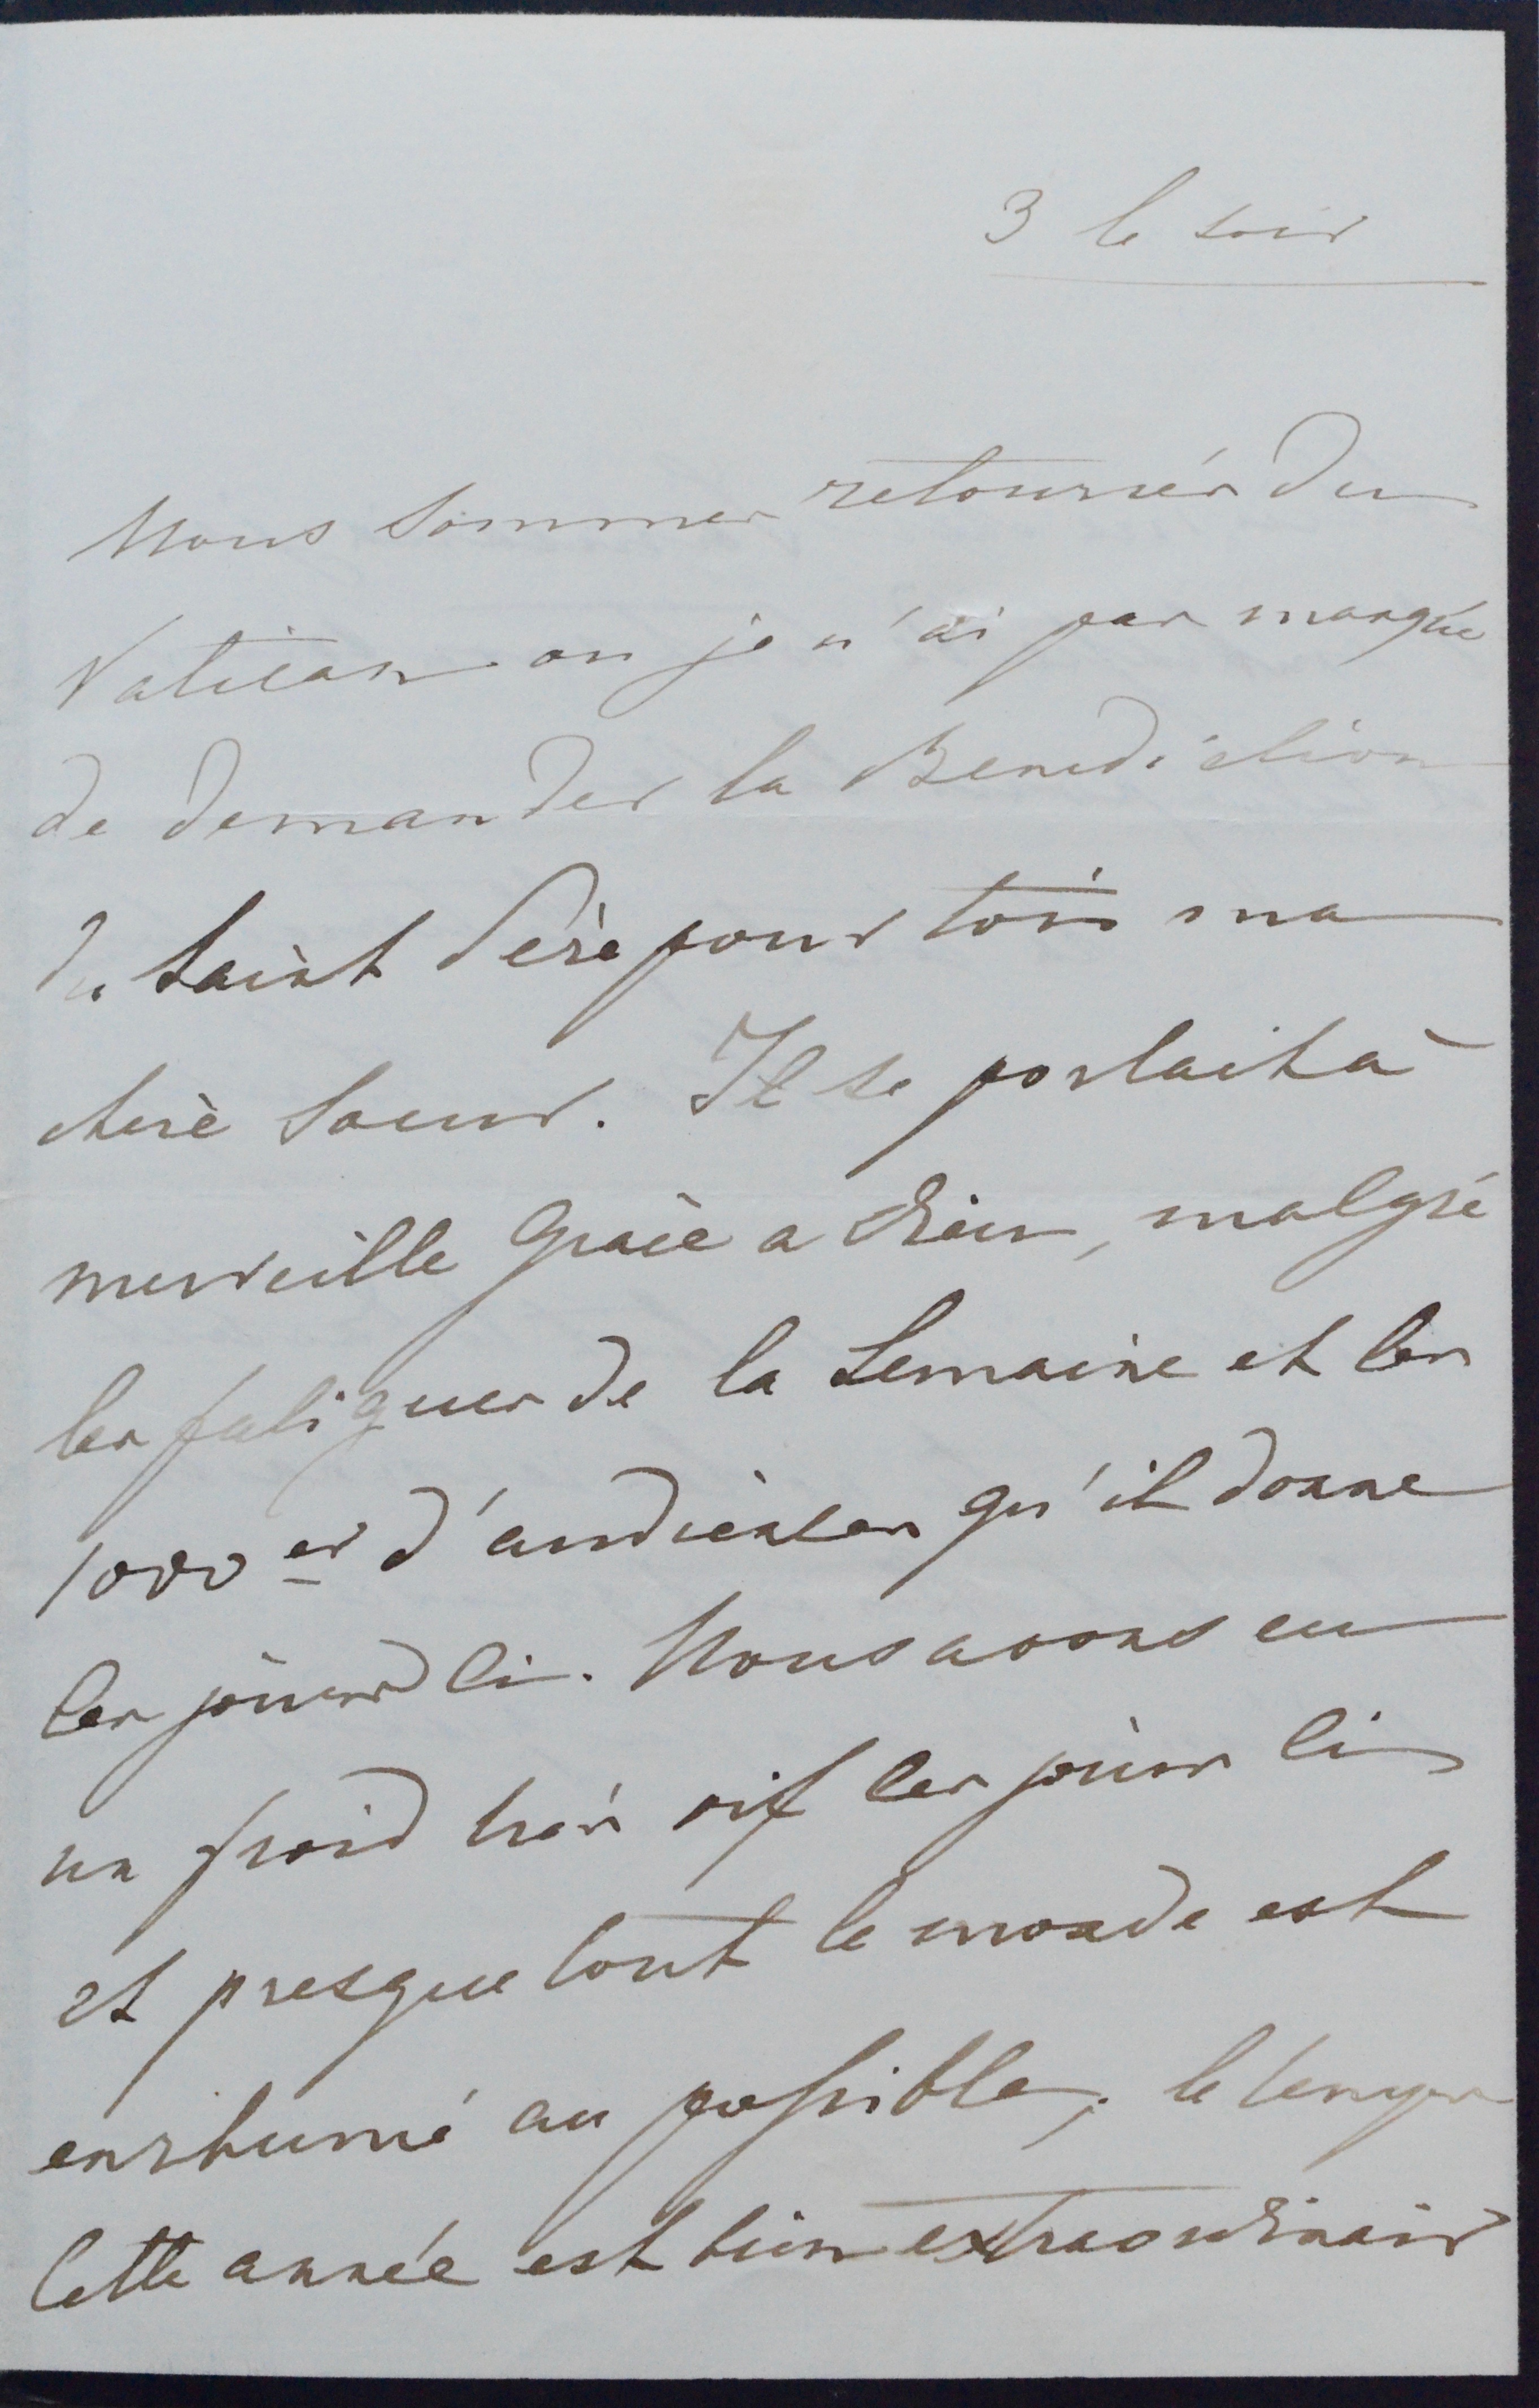 3 le soir
Nous sommes retournés du
Vatican ou je n'ai pas manqué
de demander la Benediction
du Saint Père pour toi ma
chère Soeur. Il se portait à
merveille Grace a Dieu, malgré
les fatigues de la Semaine et les
1000er d'audiences qu'il donne
ces jours ci. Nous avons eu
un froid très vif ces jours ci
et presque tout le monde est
enrhumé au possible; le temps
cette année est bien extraordinair